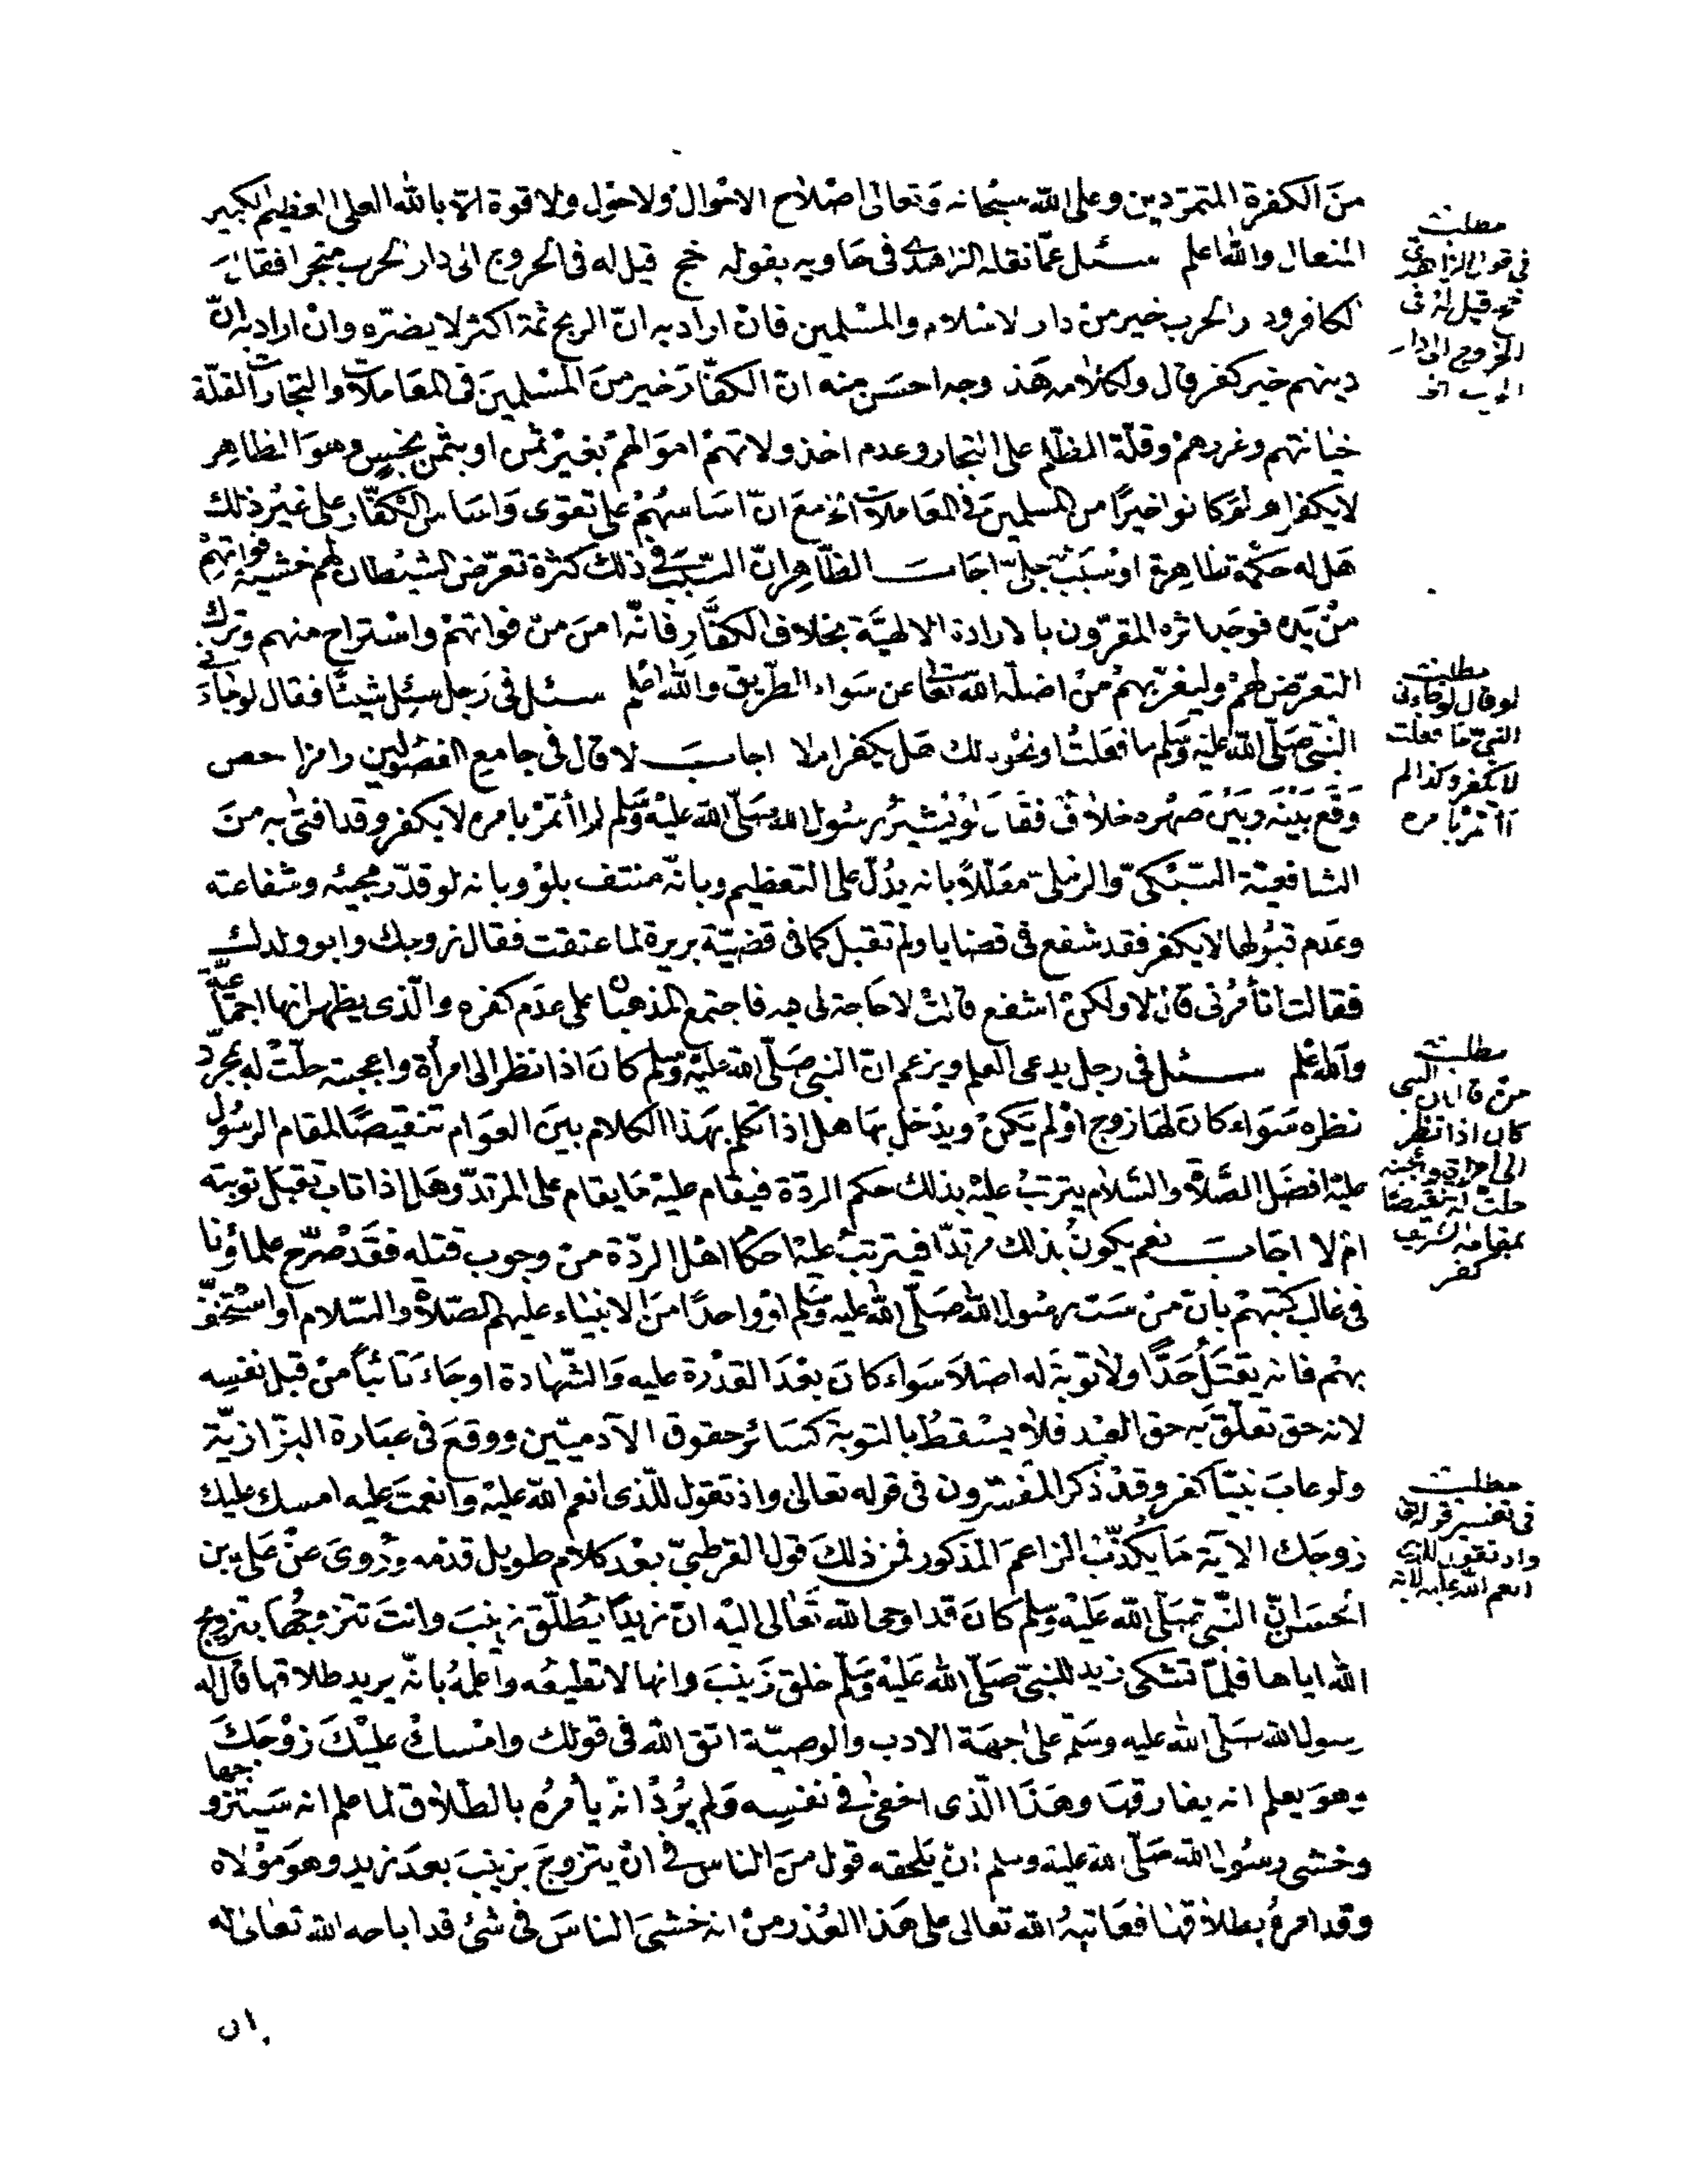 من الكفرة المتمردين وعلى الله سبحانه وتعالى اصلاح الاحوال ولا حول ولا قوة الا بالله العلى العظيم الكبير
المتعال والله اعلم سئل عما نقله الزاهدى فى حاويه بقوله خج قيل له فى الخروج الى دار الحرب متجرا فقال
الكافر ودار الحرب خير من دار الاسلام والمسلمين فان اراد به ان الربح ثمة اكثر لا يضره وان اراد به ان
دينهم خير كفر قال ولكلامه هذا وجه احسن منه ان الكفار خير من المسلمين فى المعاملات والتجارات لقلة
خيانتهم وغدرهم وقلة الظلم على التجار وعدم اخذ ولاتهم اموالهم بغير ثمن او بثمن بخيس وهو الظاهر
لا يكفر اه ولم كانوا خيرا من المسلمين فى المعاملات الخ مع ان اساسهم على تقوى واساس الكفار على غير ذلك
هل له حكمة ظاهرة او سبب جلى اجاب الظاهر ان السبب فى ذلك كثرة تعرض الشيطان لهم خشية فواتهم
من يده فوجد اثره المقرون بالارادة الالهية بخلاف الكفار فانه امن من فواتهم واستراح منهم وترك
التعرض لهم وليغر بهم من اضله الله تعالى عن سواء الطريق والله اعلم سئل فى رجل سئل شيئا فقال لو جاءنى
النبى صلى الله عليه وسلم ما فعلت او نحو ذلك هل يكفر ام لا اجاب لا قال فى جامع الفصولين رامزا حص
وقع بينه وبين صهره خلاف فقال لو بشر رسول الله صلى الله عليه وسلم لم أأتمر بامره لا يكفر وقد افتى به من
الشافعية السبكى والرملى معللا بانه يدل على التعظيم وبانه منتف بلو وبانه لو قدر مجيئه وشفاعته
وعدم قبولها لا يكفر فقد شفع فى قضايا ولم تقبل كما فى قضية بريرة لما عتقت فقال زوجك وابو ولدك
فقالت اتأمرنى قال لا ولكن اشفع قالت لا حاجة لى فيه فاجتمع المذهبان على عدم كفره والذى يظهر انها اجماعية
والله اعلم سئل فى رجل يدعى العلم ويزعم ان النبى صلى الله عليه وسلم كان اذا نظر الى امرأة واعجبته حلت له بمجرد
نظره سواء كان لها زوج او لم يكن ويدخل بها هل اذا تكلم بهذا الكلام بين العوام تنقيصا لمقام الرسول
عليه افضل الصلاة والسلام يترتب عليه بذلك حكم الردة فيقام عليه ما يقام على المرتد وهل اذا تاب تقبل توبته
ام لا اجاب نعم يكون بذلك مرتدا فيترتب عليه احكام اهل الردة من وجوب قتله فقد صرح علماؤنا
فى غالب كتبهم بان من سب رسول الله صلى الله عليه وسلم او واحدا من الانبياء عليهم الصلاة والسلام او استخف
بهم فانه يقتل حدا ولا توبة له اصلا سواء كان بعد القدرة عليه والشهادة او جاء تائبا من قبل نفسه
لانه حق تعلق به حق العبد فلا يسقط بالتوبة كسائر حقوق الآدميين ووقع فى عبارة البزازية
ولو عاب نبيا كفر وقد ذكر المفسرون فى قوله تعالى واذ تقول للذى انعم الله عليه وانعمت عليه امسك عليك
زوجك الآية ما يكذب الزاعم المذكور فمن ذلك قول القرطبى بعد كلام طويل قدمه وروى عن على بن
الحسين ان النبى صلى الله عليه وسلم كان قد اوحى الله تعالى اليه ان زيدا يطلق زينب وانت تتزوجها بتزويج
الله اياها فلما تشكى زيد للنبى صلى الله عليه وسلم خلق زينب وانها لا تطيعه واعلمه بانه يريد طلاقها قال له
رسول الله صلى الله عليه وسلم على جهة الادب والوصية اتق الله فى قولك وامسك عليك زوجك
وهو يعلم انه يفارقها وهذا الذى اخفى فى نفسه ولم يرد انه يأمره بالطلاق لما علم انه سيتزوجها
وخشى رسول الله صلى الله عليه وسلم ان يلحقه قول من الناس فى ان يتزوج بزينب بعد زيد وهو مولاه
وقد امره بطلاقها فعاتبه الله تعالى على هذا العذر من انه خشى الناس فى شئ قد اباحه الله تعالى له
ان
مطلب
فى قول الزاهدى
خج قيل له فى
الخروج الى دار
الحرب الخ
مطلب
لو قال لو جاءنى
النبى ما فعلت
لا يكفر وكذا لم
أأتمر بامره
مطلب
من قال ان النبى
كان اذا نظر
الى امرأة واعجبته
حلت له تنقيصا
بمقامه الشريف
كفر
مطلب
فى تفسير قوله تعالى
واذ تقول للذى
انعم الله عليه الآية